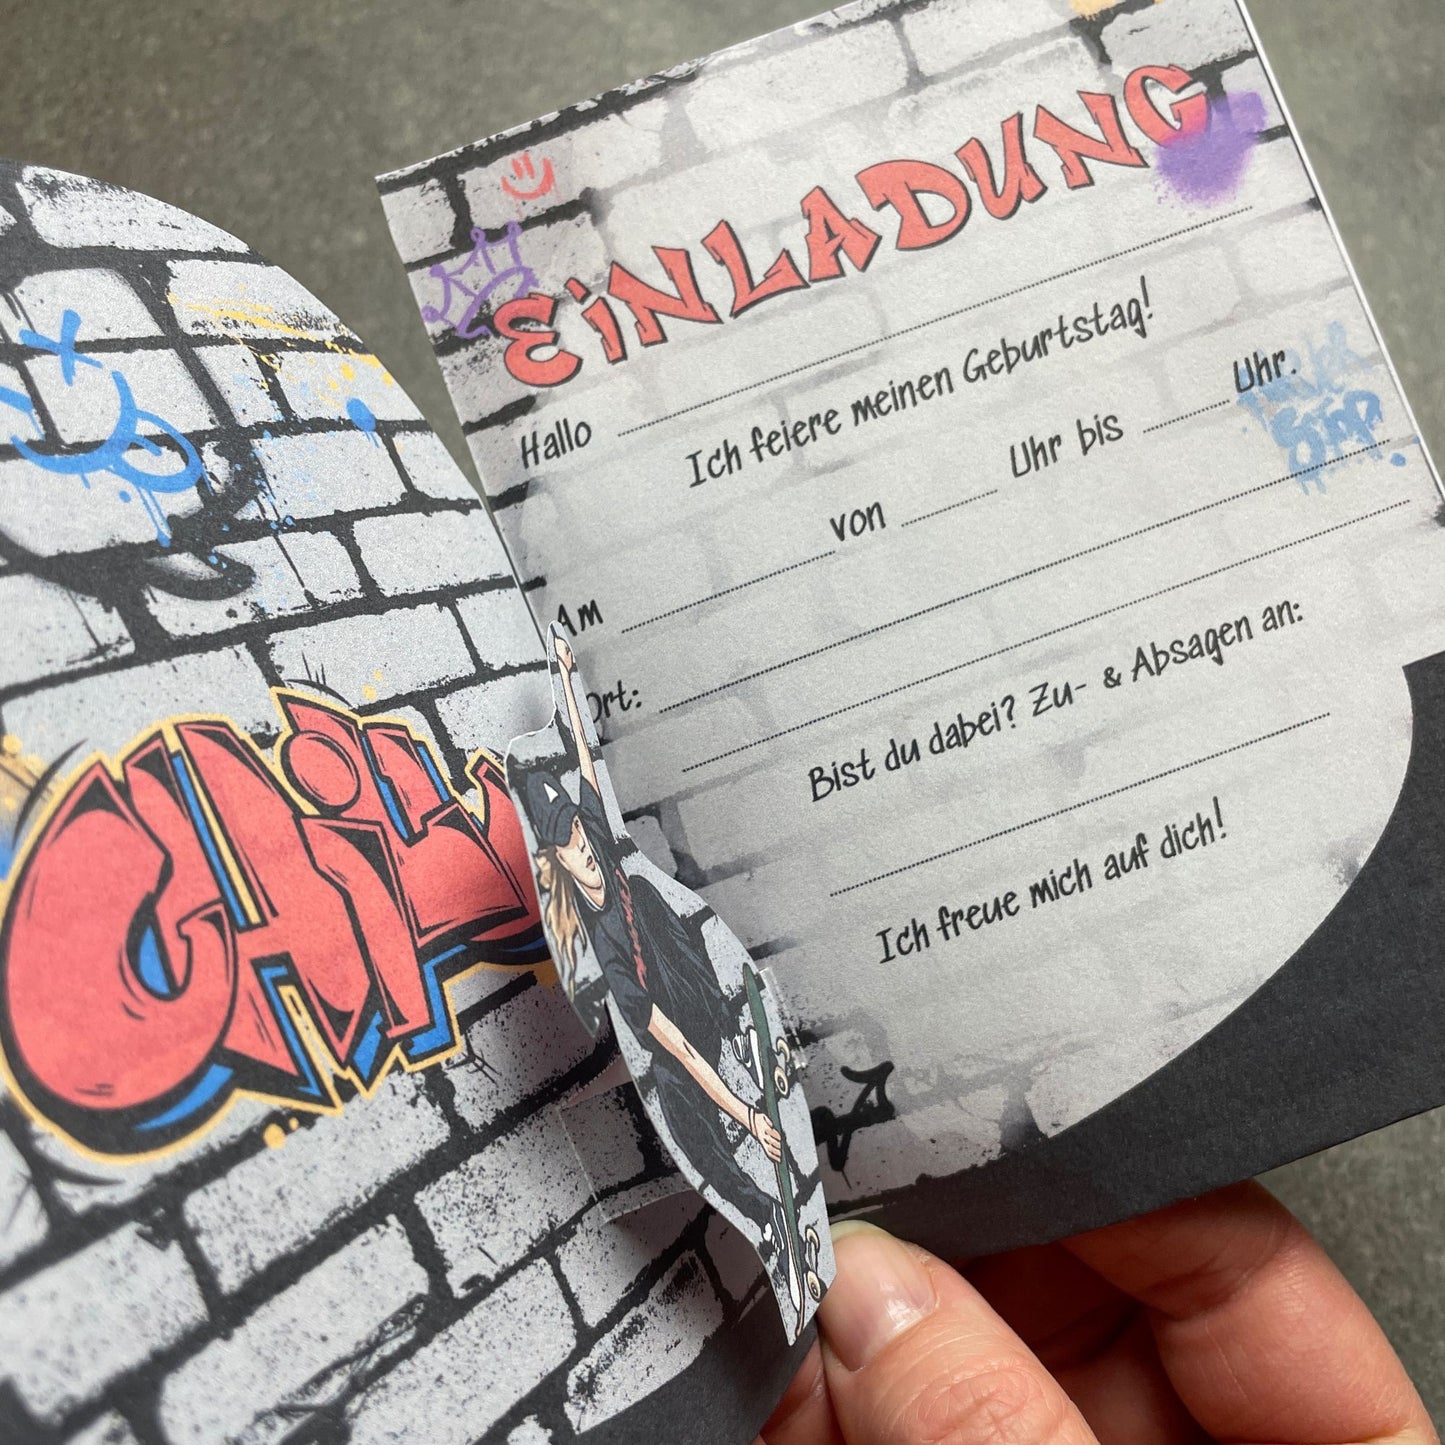 EiNLADUNG
Hallo
Ich feiere meinen Geburtstag!
Am von Uhr bis Uhr.
Ort:
Bist du dabei? Zu- & Absagen an:
Ich freue mich auf dich!
CHiLL